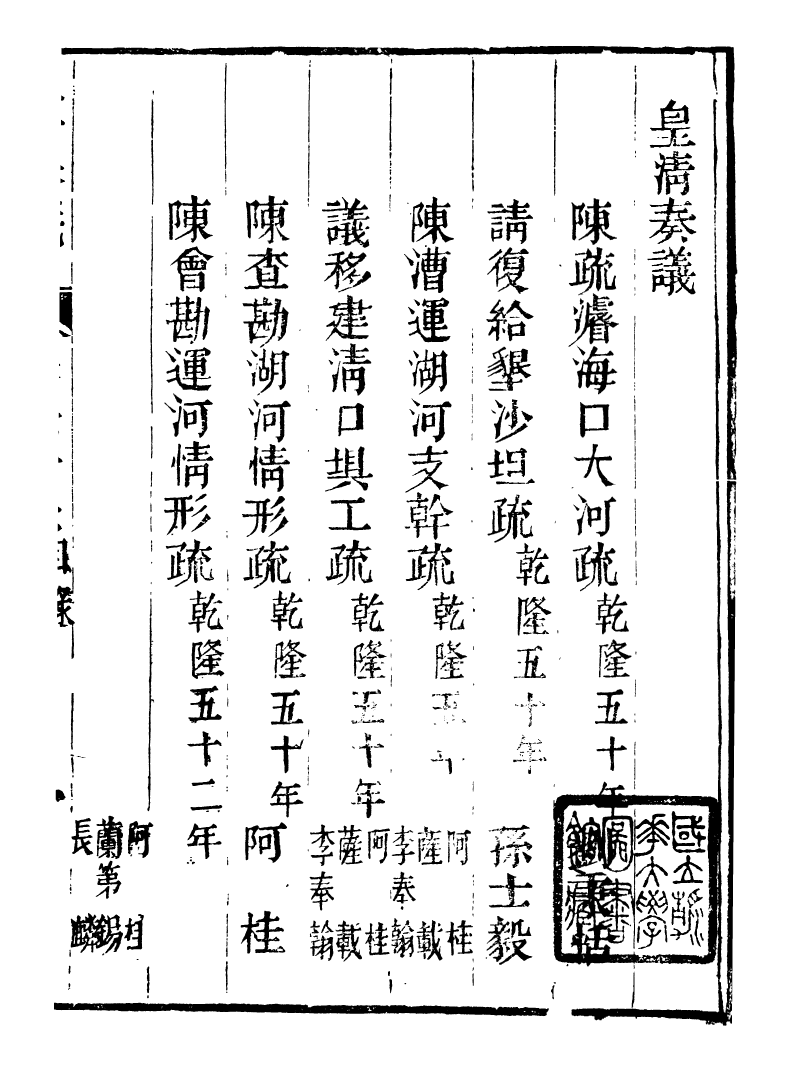 皇清奏議
陳疏濬海口大河疏 乾隆五十年
國立清華大學圖書館藏
請復給墾沙坦疏 乾隆五十年 孫士毅
陳漕運湖河支幹疏 乾隆五十 阿桂 薩載 李奉翰
議移建清口垻工疏 乾隆五十年 阿桂 薩載 李奉翰
陳查勘湖河情形疏 乾隆五十年 阿桂
陳會勘運河情形疏 乾隆五十二年 阿桂 蘭第錫 長麟
目錄